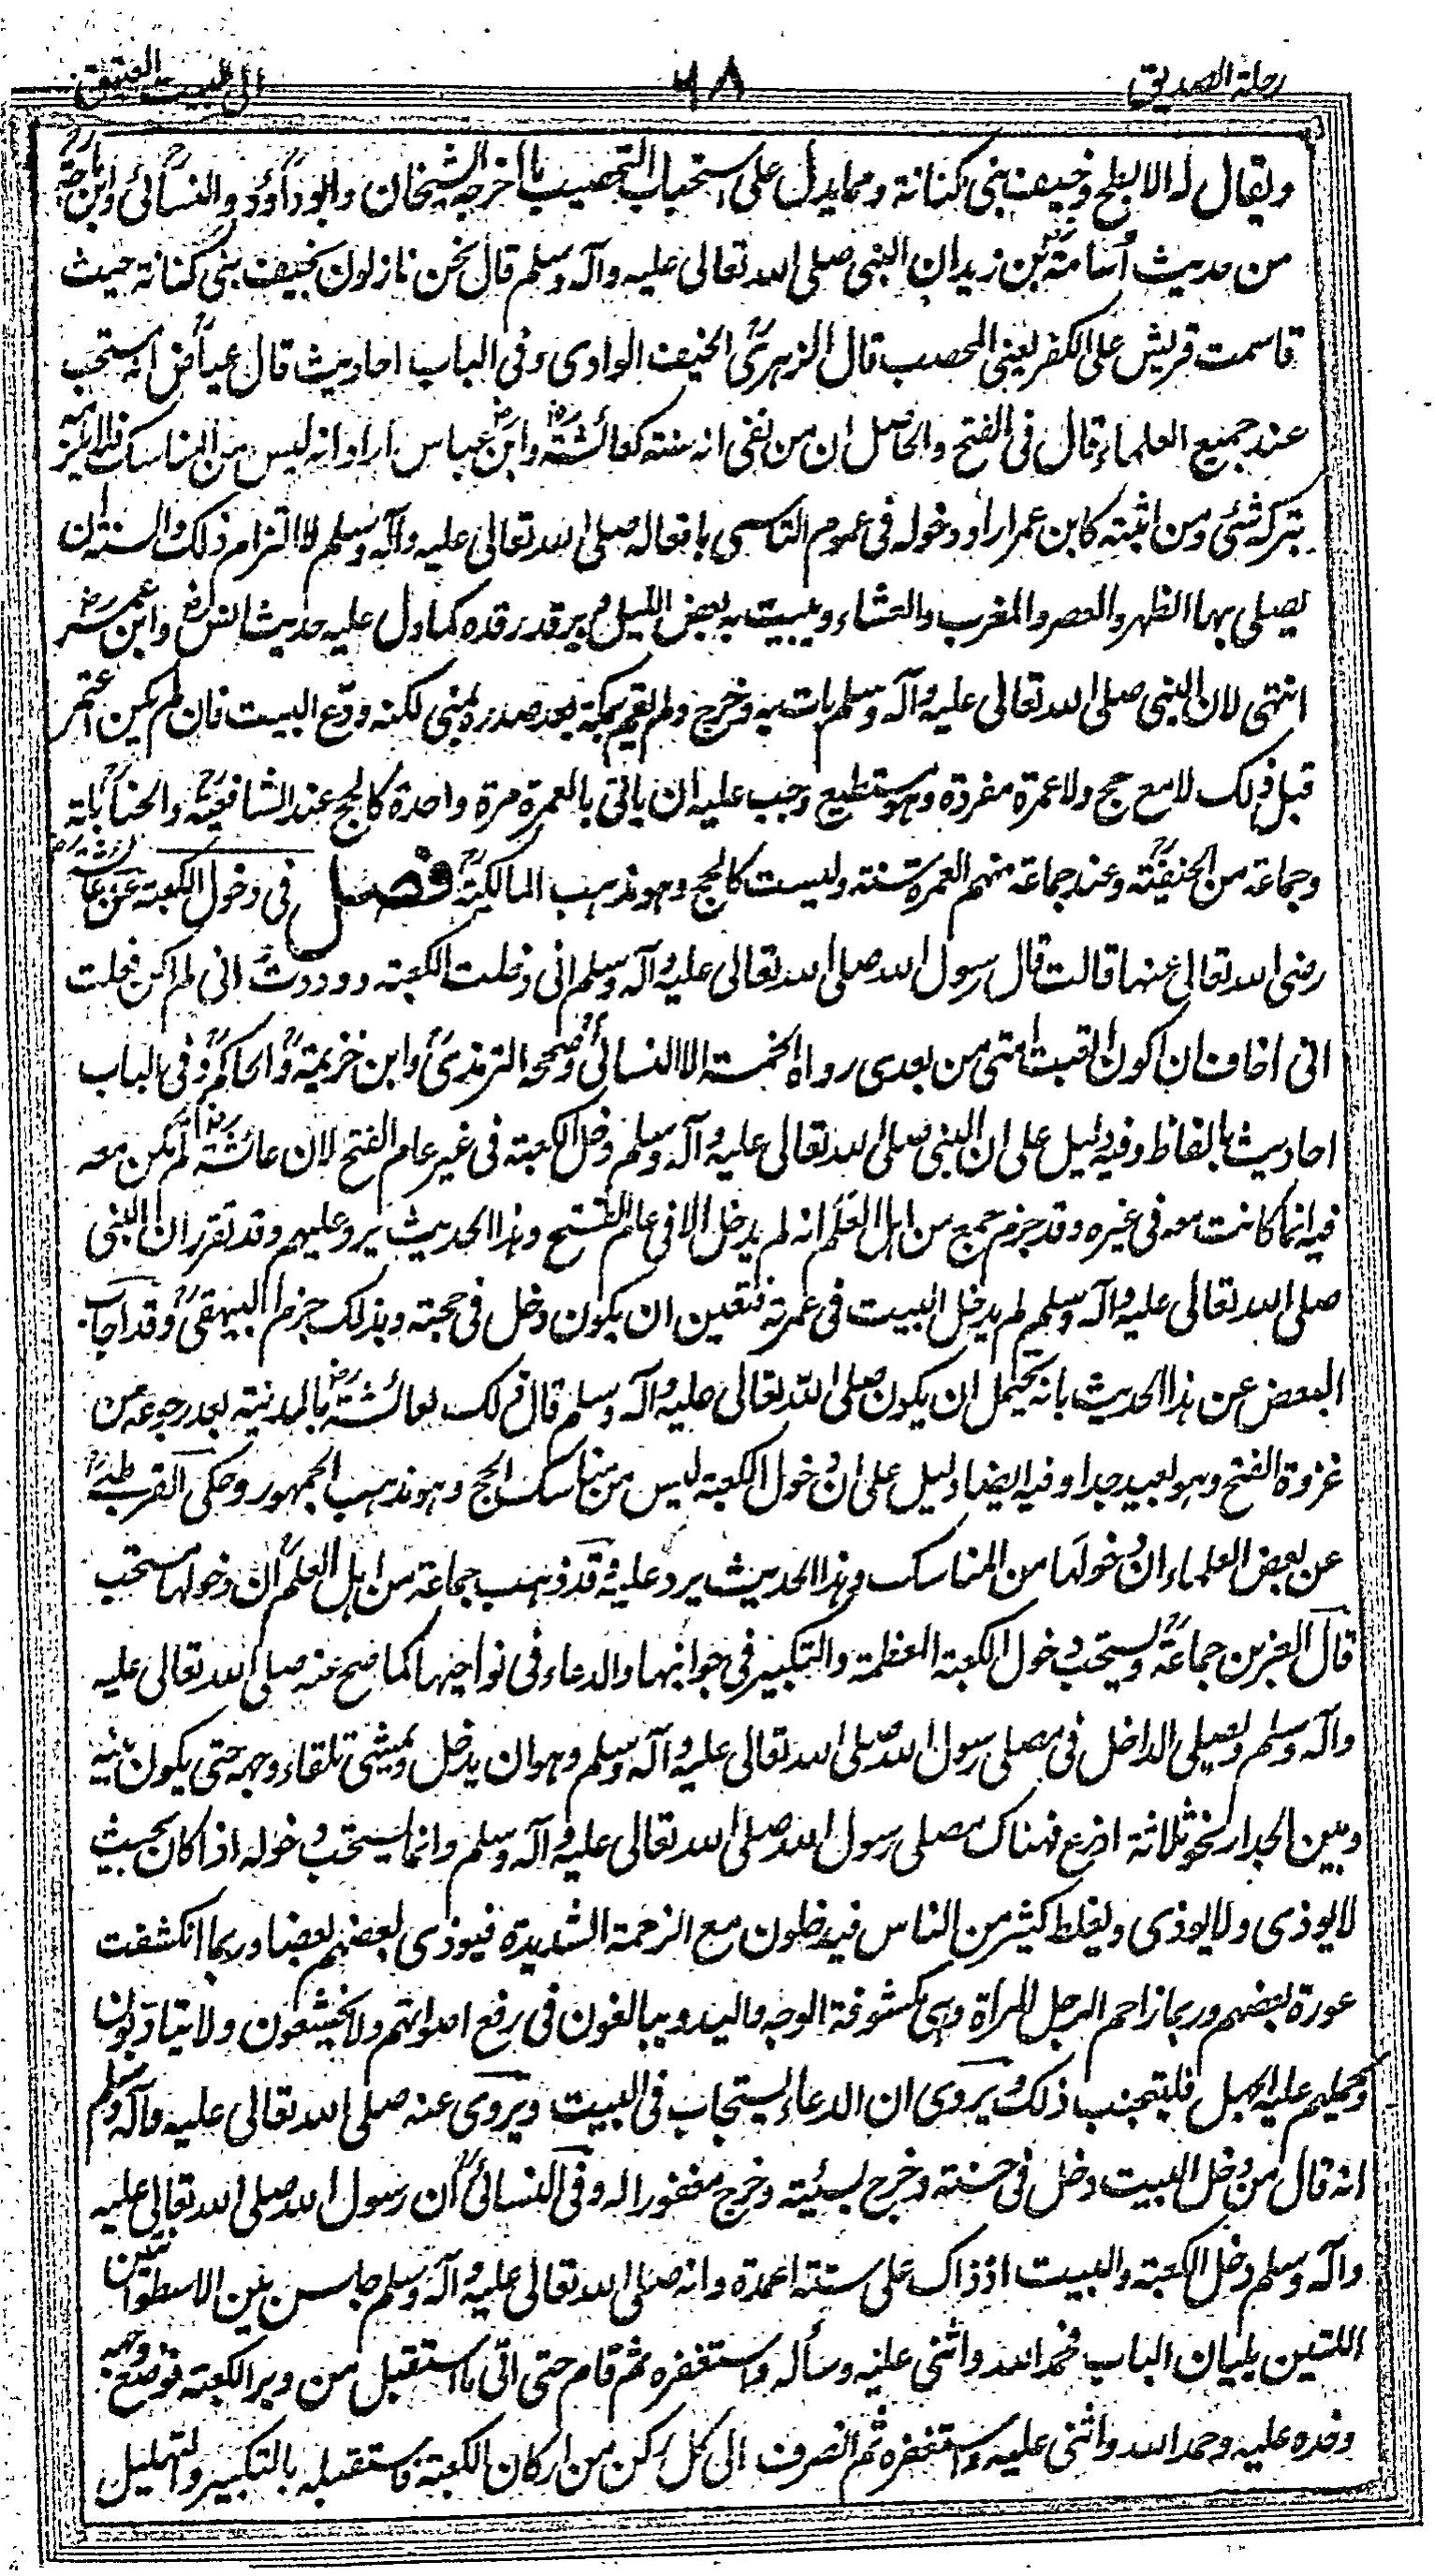 رحلة الصديق ٦٨ الى البيت العتيق
ويقال له الابطح وخيف بنى كنانة ومما يدل على استحباب التحصيب ما اخرجه الشيخان وابو داؤد والنسائى وابن ماجة
من حديث أسامة بن زيد ان النبى صلى الله تعالى عليه وآله وسلم قال نحن نازلون بخيف بنى كنانة حيث
قاسمت قريش على الكفر يعنى المحصب قال الزهرى الخيف الوادى وفى الباب احاديث قال عياض انه مستحب
عند جميع العلماء قال فى الفتح والحاصل ان من نفى انه سنة كعائشة وابن عباس اراد انه ليس من المناسك فلا يلزمه
بتركه شئ ومن اثبته كابن عمر اراد دخوله فى عموم التاسى بافعاله صلى الله تعالى عليه وآله وسلم لا التزام ذلك والسنة ان
يصلى بها الظهر والعصر والمغرب والعشاء ويبيت به بعض الليل ويرقد رقده كما دل عليه حديث انس وابن عمر
انتهى لان النبى صلى الله تعالى عليه وآله وسلم بات به وخرج ولم يقم بمكة بعد صدره لمنى لكنه ودّع البيت فان لم يكن اعتمر
قبل ذلك لا مع حج ولا عمرة مفردة وهو مستطيع وجب عليه ان ياتى بالعمرة مرة واحدة كالحج عند الشافعية والحنابلة
وجماعة من الحنفية وعند جماعة منهم العمرة سنة وليست كالحج وهو مذهب المالكية فصل فى دخول الكعبة عن عائشة
رضى الله تعالى عنها قالت قال رسول الله صلى الله تعالى عليه وآله وسلم انى دخلت الكعبة ووددت انى لم اكن فعلت
انى اخاف ان اكون اتعبت امتى من بعدى رواه الخمسة الا النسائى وصححه الترمذى وابن خزيمة والحاكم وفى الباب
احاديث بالفاظ وفيه دليل على ان النبى صلى الله تعالى عليه وآله وسلم دخل الكعبة فى غير عام الفتح لان عائشة لم تكن معه
فيه انما كانت معه فى غيره وقد جزم جمع من اهل العلم انه لم يدخل الا فى عام الفتح وهذا الحديث يرد عليهم وقد تقرر ان النبى
صلى الله تعالى عليه وآله وسلم لم يدخل البيت فى عمرته فتعين ان يكون دخل فى حجته وبذلك جزم البيهقى وقد اجاب
البعض عن هذا الحديث بانه يحتمل ان يكون صلى الله تعالى عليه وآله وسلم قال ذلك لعائشة بالمدينة بعد رجوعه من
غزوة الفتح وهو بعيد جدا وفيه ايضا دليل على ان دخول الكعبة ليس من مناسك الحج وهو مذهب الجمهور وحكى القرطبى
عن بعض العلماء ان دخولها من المناسك وهذا الحديث يرد عليه وقد ذهب جماعة من اهل العلم ان دخولها مستحب
قال العز بن جماعة ويستحب دخول الكعبة المعظمة والتكبير فى جوانبها والدعاء فى نواحيها كما صح عنه صلى الله تعالى عليه
وآله وسلم ويصلى الداخل فى مصلى رسول الله صلى الله تعالى عليه وآله وسلم وهو ان يدخل ويمشى تلقاء وجهه حتى يكون بينه
وبين الجدار نحو ثلاثة اذرع فهناك مصلى رسول الله صلى الله تعالى عليه وآله وسلم وانما يستحب دخوله اذا كان بحيث
لا يوذى ولا يوذى ويغلط كثير من الناس فيدخلون مع الزحمة الشديدة فيوذى بعضهم بعضا وربما انكشفت
عورة بعضهم وربما زاحم الرجل المراة وهى مكشوفة الوجه واليد ويبالغون فى رفع اصواتهم ولا يخشعون ولا يتادبون
ويحملهم عليه الجهل فليتجنب ذلك ويروى ان الدعاء يستجاب فى البيت ويروى عنه صلى الله تعالى عليه وآله وسلم
انه قال من دخل البيت دخل فى حسنة وخرج من سيئة وخرج مغفورا له وفى النسائى ان رسول الله صلى الله تعالى عليه
وآله وسلم دخل الكعبة والبيت اذ ذاك على ستة اعمدة وانه صلى الله تعالى عليه وآله وسلم جلس بين الاسطوانتين
اللتين يليان الباب فحمد الله واثنى عليه وسأله واستغفره ثم قام حتى اتى ما استقبل من دبر الكعبة فوضع وجهه
وخده عليه وحمد الله واثنى عليه واستغفره ثم انصرف الى كل ركن من اركان الكعبة فاستقبله بالتكبير والتهليل